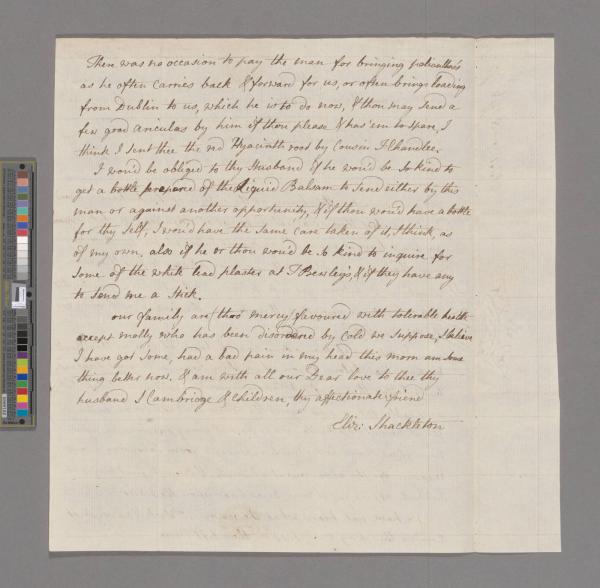 There was no occasion to pay the man for bringing polianthos
as he often carries back & forward for us, or often brings loading
from Dublin to us, which he is to do now, & thou may send a
few good ariculas by him if thou please & has 'em to spare, I
think I sent thee the red Hyacinth root by Cousin F Chandlee.
I wou'd be obliged to thy Husband if he wou'd be so kind to
get a bottle prepared of the Liquid Balsam to send either by this
man or against another opportunity, & if thou wou'd have a bottle
for thy self, I wou'd have the same care taken of it, I think, as
of my own. also if he or thou wou'd be so kind to inquire for
some of the white lead plaster at T Bewley's, & if they have any
to send me a Stick.
our family are (thro' mercy) favoured with tolerable health
accept molly who has been disordered by Cold we suppose, I believe
I have got some, had a bad pain in my head this morn am some
thing better now. & am with all our Dear love to thee thy
husband S Cambridge & Children, thy affectionate friend
Eliz: Shackleton